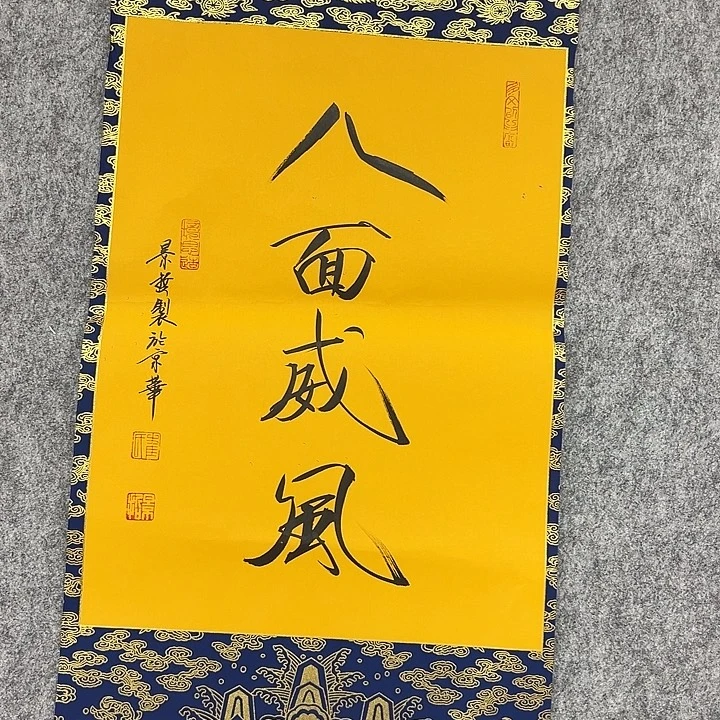 八面威風
景哲製於京華